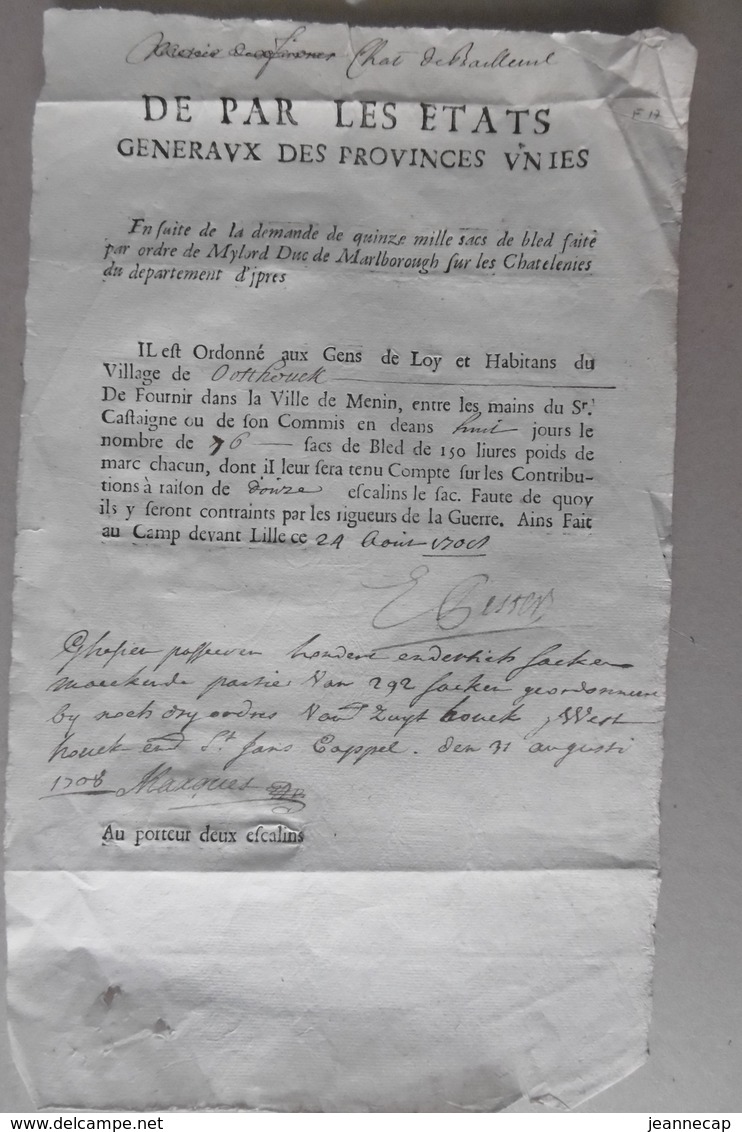 Chat de Bailleul
F 17
DE PAR LES ETATS
GENERAVX DES PROVINCES VNIES
En suite de la demande de quinze mille sacs de bled faite
par ordre de Mylord Duc de Marlborough sur les Chatelenies
du departement d'jpres
IL est Ordonné aux Gens de Loy et Habitans du
Village de Oosthouck
De Fournir dans la Ville de Menin, entre les mains du Sr.
Castaigne ou de son Commis en deans huit jours le
nombre de 76 sacs de Bled de 150 liures poids de
marc chacun, dont il leur sera tenu Compte sur les Contribu-
tions à raison de douze escalins le sac. Faute de quoy
ils y seront contraints par les rigueurs de la Guerre. Ains Fait
au Camp devant Lille ce 24 Aout 1708
hondert endertich sacken
maeckende partie van 292 sacken geordonneert
by noch dry ordres van Zuythouck, West
houck end St Jans Cappel. den 31 augusti
1708 Marques
Au porteur deux escalins
jeannecap